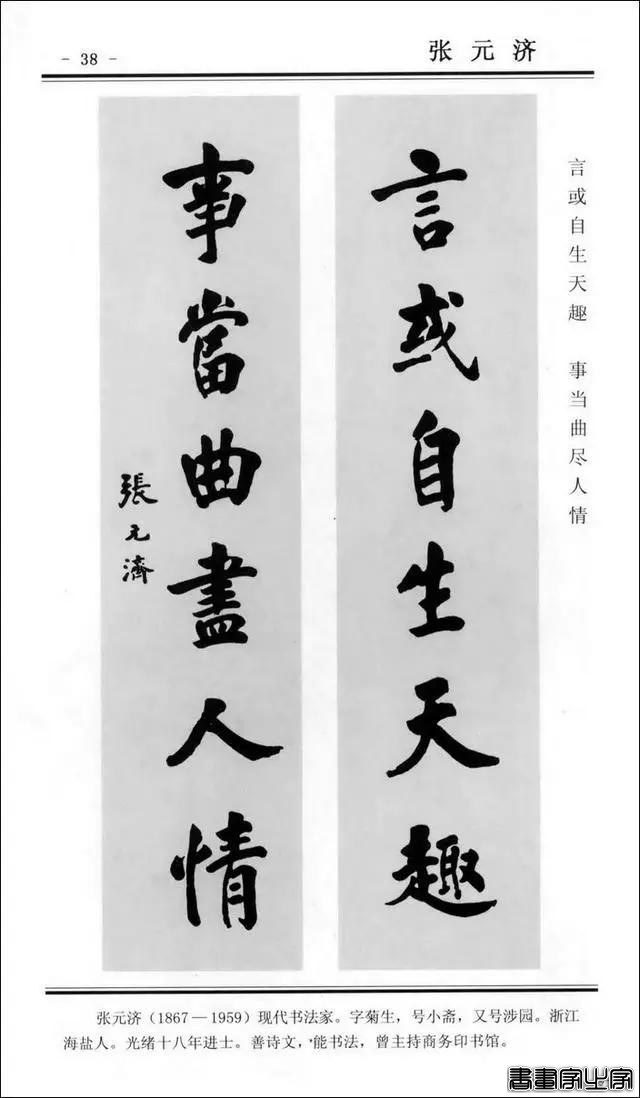 - 38 -
张元济
言或自生天趣
事當曲盡人情
張元濟
言或自生天趣 事当曲尽人情
张元济(1867—1959)现代书法家。字菊生,号小斋,又号涉园。浙江
海盐人。光绪十八年进士。善诗文,能书法,曾主持商务印书馆。